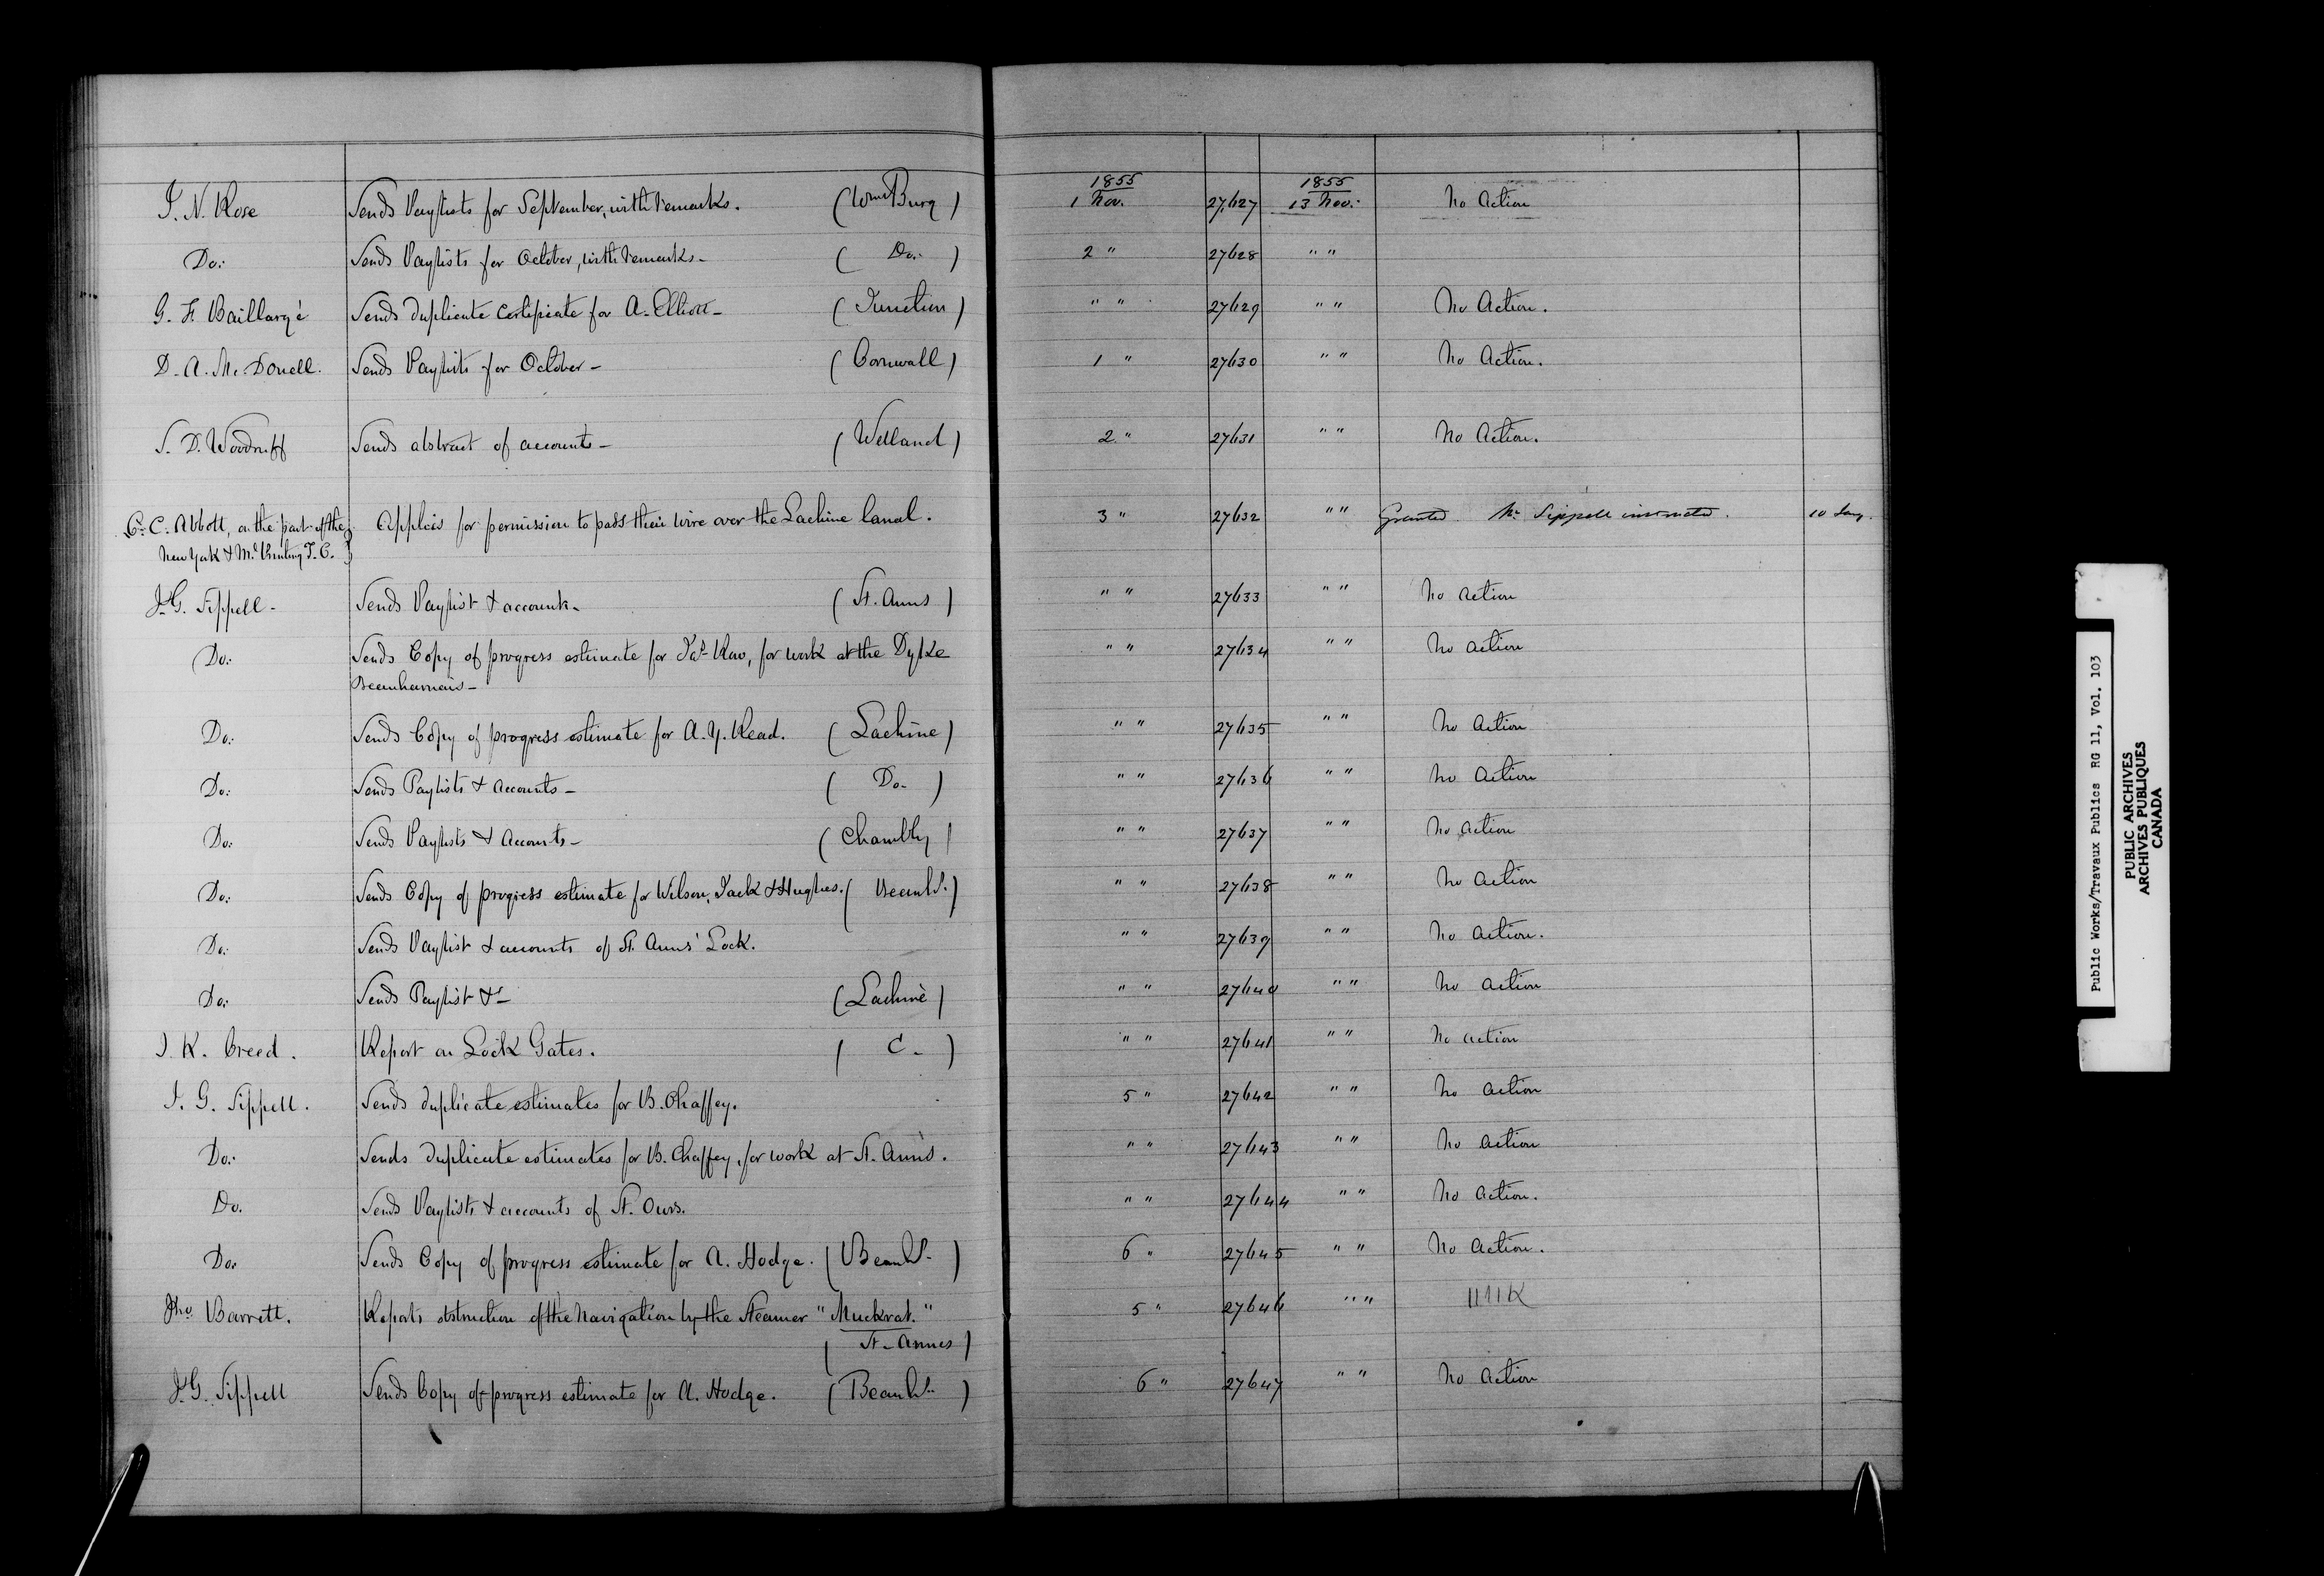 1855 1855
I. N. Rose Sends Paylists for September, with remarks. (Wms Burg) 1 Nov. 27,627 13 Nov. No Action
Do: Sends Paylists for October, with remarks - ( Do. ) 2 " 27628 " "
G. F. Baillargé Sends duplicate Certificate for A. Elliott - (Junction) " " 27629 " " No Action.
D. A. Mc. Donell. Sends Paylists for October - (Cornwall) 1 " 27630 " " No Action.
S. D. Woodruff Sends abstract of accounts - (Welland) 2 " 27631 " " No Action.
C. C. Abbott, on the part of the Applies for permission to pass their wire over the Lachine Canal. 3 " 27632 " " Granted. Mr. Sippell instructed. 10 Jany.
New York & Ml. Printing T. C.
J. G. Sippell - Sends Paylist & accounts - (St. Anns) " " 27633 " " No action
Do: Sends Copy of progress estimate for Jas. , for work at the Dyke " " 27634 " " No action
Beauharnois -
Do: Sends Copy of progress estimate for A. Y. Read. (Lachine) " " 27635 " " No Action
Do: Sends Paylists & Accounts - ( Do. ) " " 27636 " " No Action
Do: Sends Paylists & Accounts - (Chambly) " " 27637 " " No action
Do: Sends Copy of progress estimate for Wilson, Jack & Hughes. (Beauhs.) " " 27638 " " No action
Do: Sends Paylist & accounts of St. Anns' Lock. " " 27639 " " No action.
Do: Sends Paylist &c - (Lachine) " " 27640 " " No action
I. K. Creed. Report on Lock Gates. ( C. ) " " 27641 " " No action
J. G. Sippell. Sends duplicate estimates for B. Chaffey. 5 " 27642 " " No action
Do: Sends duplicate estimates for B. Chaffey, for work at St. Ann's. " " 27643 " " No action
Do. Sends Paylists & accounts of St. Ours. " " 27644 " " No Action.
Do: Sends Copy of progress estimate for A. Hodge. (Beauhs.) 6 " 27645 " " No Action.
Jno. Barrett. Reports obstruction of the navigation by the Steamer "Muckrat." 5 " 27646 " "
(St. Annes)
J. G. Sippell Sends Copy of progress estimate for A. Hodge. (Beauhs.) 6 " 27647 " " No Action
Public Works/Travaux Publics RG 11, Vol. 103
PUBLIC ARCHIVES
ARCHIVES PUBLIQUES
CANADA